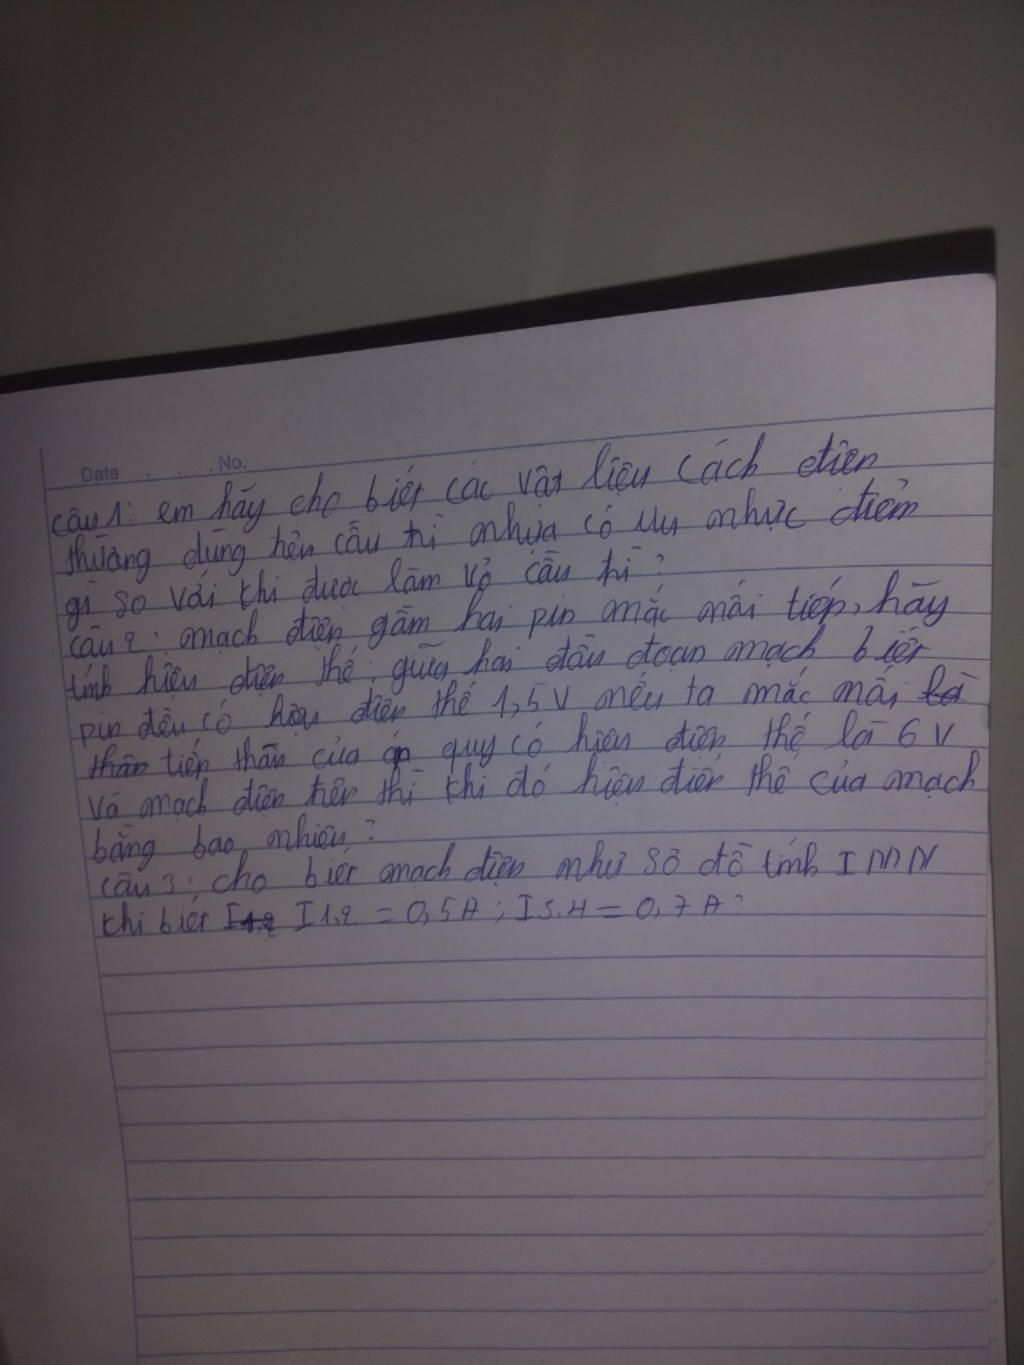 Date . . . No.
câu 1: em hãy cho biết các vật liệu cách điện
thường dùng trên cầu trì nhựa có ưu nhực điểm
gì so với khi được làm vỏ cầu trì?
câu 2: mạch điện gầm hai pin mắc nối tiếp, hãy
tính hiệu điện thế giữa hai đầu đoạn mạch biết
pin đều có hiệu điện thế 1,5 V nếu ta mắc nối
tiếp thân của ắp quy có hiệu điện thế là 6 V
và mạch điện trên thì khi đó hiệu điện thế của mạch
bằng bao nhiêu?
câu 3: cho biết mạch điện như sơ đồ tính I MN
khi biết I1,2 = 0,5A; I3.4 = 0,7 A?